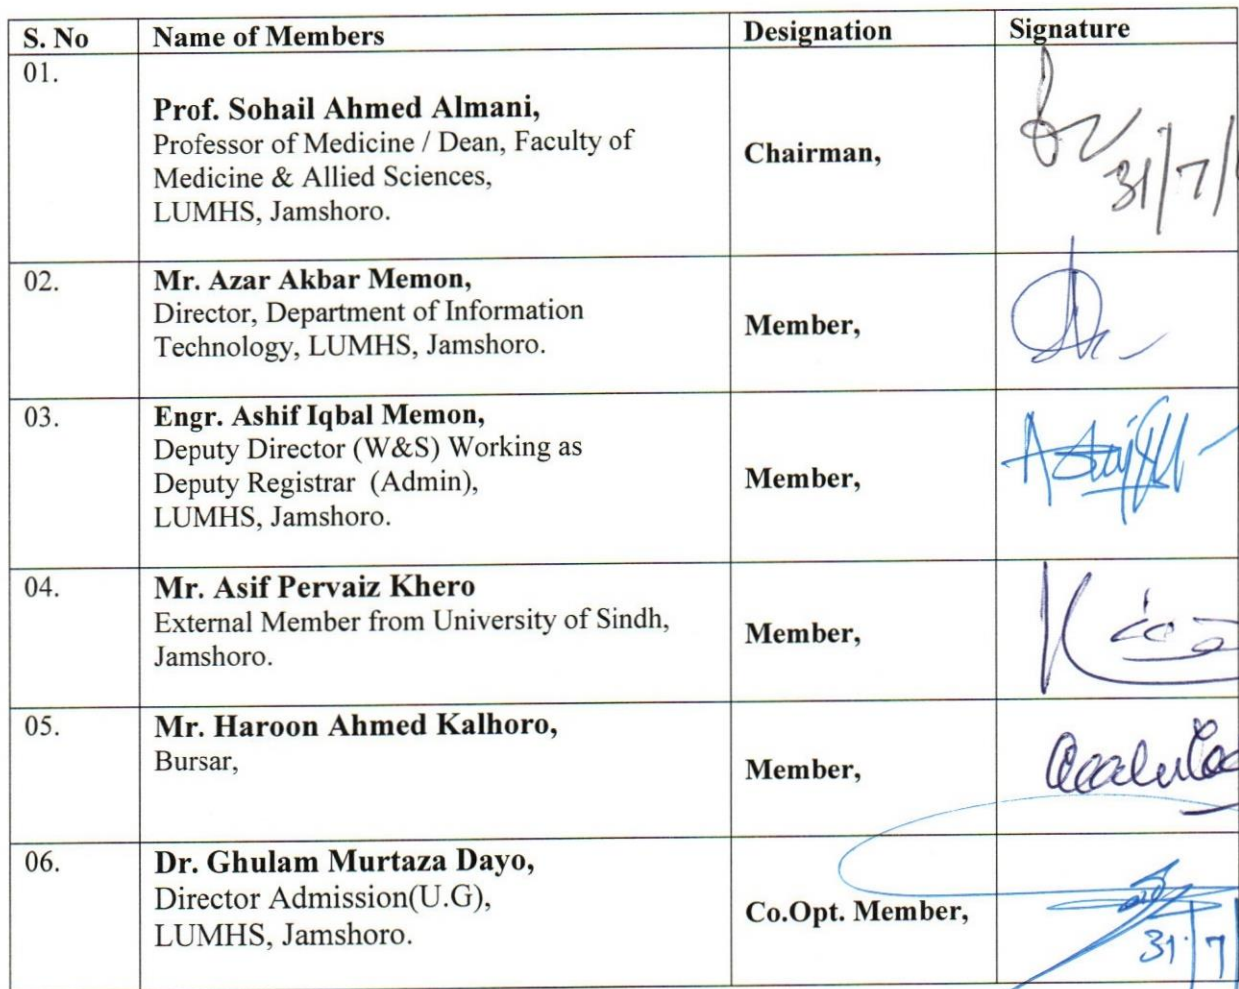 S. No Name of Members Designation Signature
01.
Prof. Sohail Ahmed Almani,
Professor of Medicine / Dean, Faculty of
Medicine & Allied Sciences,
LUMHS, Jamshoro.
Chairman,
31/7/
02.
Mr. Azar Akbar Memon,
Director, Department of Information
Technology, LUMHS, Jamshoro.
Member,
03.
Engr. Ashif Iqbal Memon,
Deputy Director (W&S) Working as
Deputy Registrar (Admin),
LUMHS, Jamshoro.
Member,
04.
Mr. Asif Pervaiz Khero
External Member from University of Sindh,
Jamshoro.
Member,
05.
Mr. Haroon Ahmed Kalhoro,
Bursar,
Member,
06.
Dr. Ghulam Murtaza Dayo,
Director Admission(U.G),
LUMHS, Jamshoro.
Co.Opt. Member,
31/7/